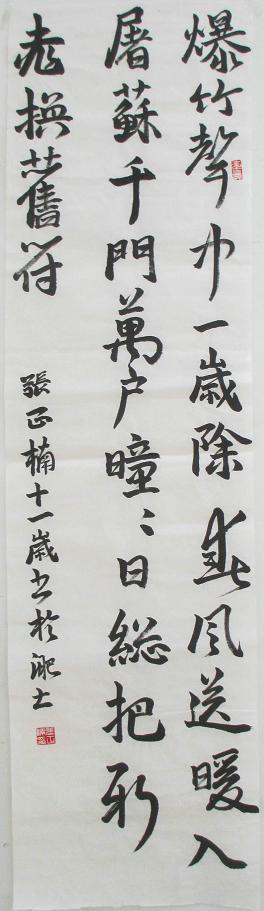 爆竹聲中一歲除春风送暖入
屠蘇千門萬户瞳々日総把新
桃換舊符
張正楠十一歲书於淝上